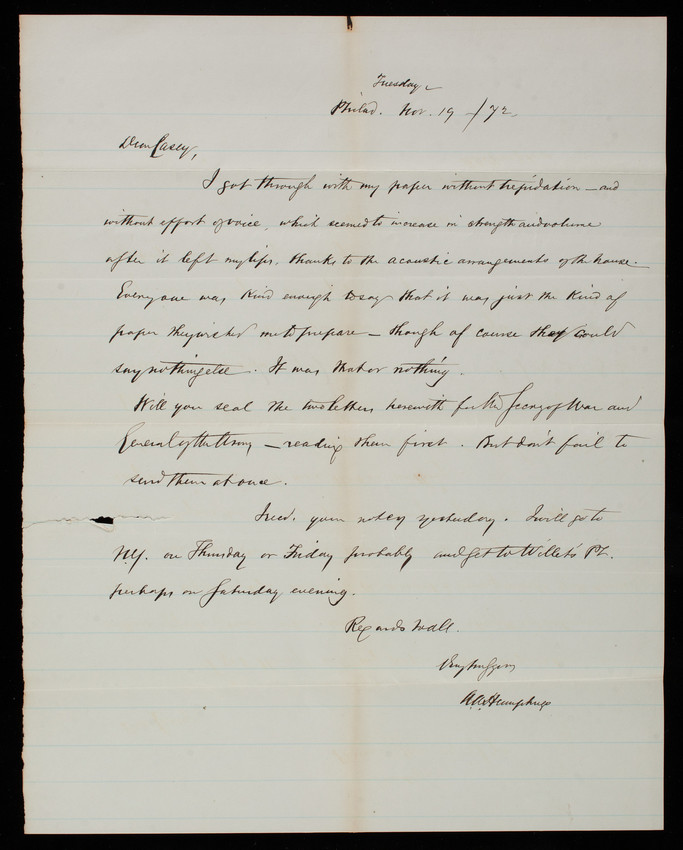 Tuesday
Philad. Nov. 19 /72
Dear Casey,
I got through with my paper without trepidation – and
without effort of voice, which seemed to increase in strength and volume
after it left my lips, thanks to the acoustic arrangements of the house.
Everyone was kind enough to say that it was just the kind of
paper they wished me to prepare – though of course they could
say nothing else. It was that or nothing.
Will you seal the two letters herewith for the Secy of War and
General of the Army – reading them first. But don't fail to
send them at once.
Recd. your note of yesterday. I will go to
N.Y. on Thursday or Friday probably and get to Willets Pt.
perhaps on Saturday evening.
Regards to all.
Very truly yours
A.A. Humphreys